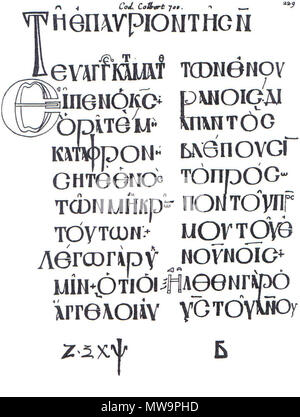 Cod. Colbert 700.
229
ΤΗΕΠΑΥΡΙΟΝΤΗϹΝ̄
ΕΥΑΓΓΚΑΜΑΤ
ΕΙΠΕΝΟΚϹ·
ΟΡΑΤΕΜ
ΚΑΤΑΦΡΟΝ
ϹΗΤΕΕΝΟϹ
ΤΩΝΜΗΚΡ
ΤΟΥΤΩΝ·
ΛΕΓΩΓΑΡΥ
ΜΙΝ·ΟΤΙΟΙ
ΑΓΓΕΛΟΙΑΥ
ΤΩΝΕΝΟΥ
ΡΑΝΟΙϹΔΙ
ΑΠΑΝΤΟϹ
ΒΛΕΠΟΥϹΙ
ΤΟΠΡΟϹω
ΠΟΝΤΟΥΠΡϹ
ΜΟΥΤΟΥΕ
ΝΟΥΝΟΙϹ·
ΗΛΘΕΝΓΑΡΟ
ΥϹΤΟΥΑΝΟΥ
alamy
Image ID: MW9PHD
www.alamy.com